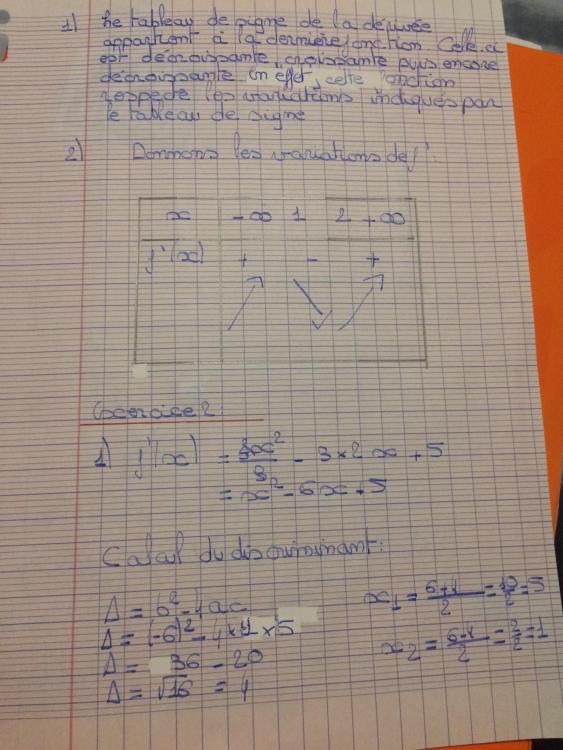 1) Le tableau de signe de la dérivée
appartient à la dernière fonction. Celle-ci
est décroissante, croissante puis encore
décroissante. En effet, cette fonction
respecte les variations indiqués par
le tableau de signe
2) Donnons les variations de f'.
x -∞ 1 2 +∞
f'(x) + - +
Exercice 2:
1) f'(x) = 3x²/3 - 3×2x + 5
= x² - 6x + 5
Calcul du discriminant:
Δ = b² - 4ac
Δ = (-6)² - 4×1×5
Δ = 36 - 20
Δ = √16 = 4
x₁ = 6+4/2 = 10/2 = 5
x₂ = 6-4/2 = 2/2 = 1